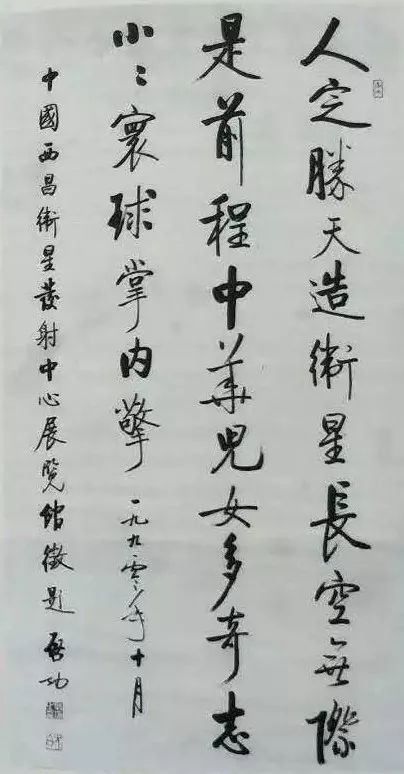 人定勝天造衛星長空無際
是前程中華兒女多奇志
小〻寰球掌内擎 一九九零年十月
中國西昌衛星發射中心展覽館徵題 啓功